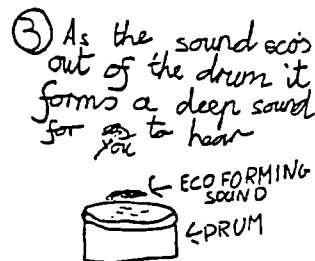 ③ As the sound eco's
out of the drum it
forms a deep sound
for you to hear
← ECO FORMING
SOUND
← DRUM